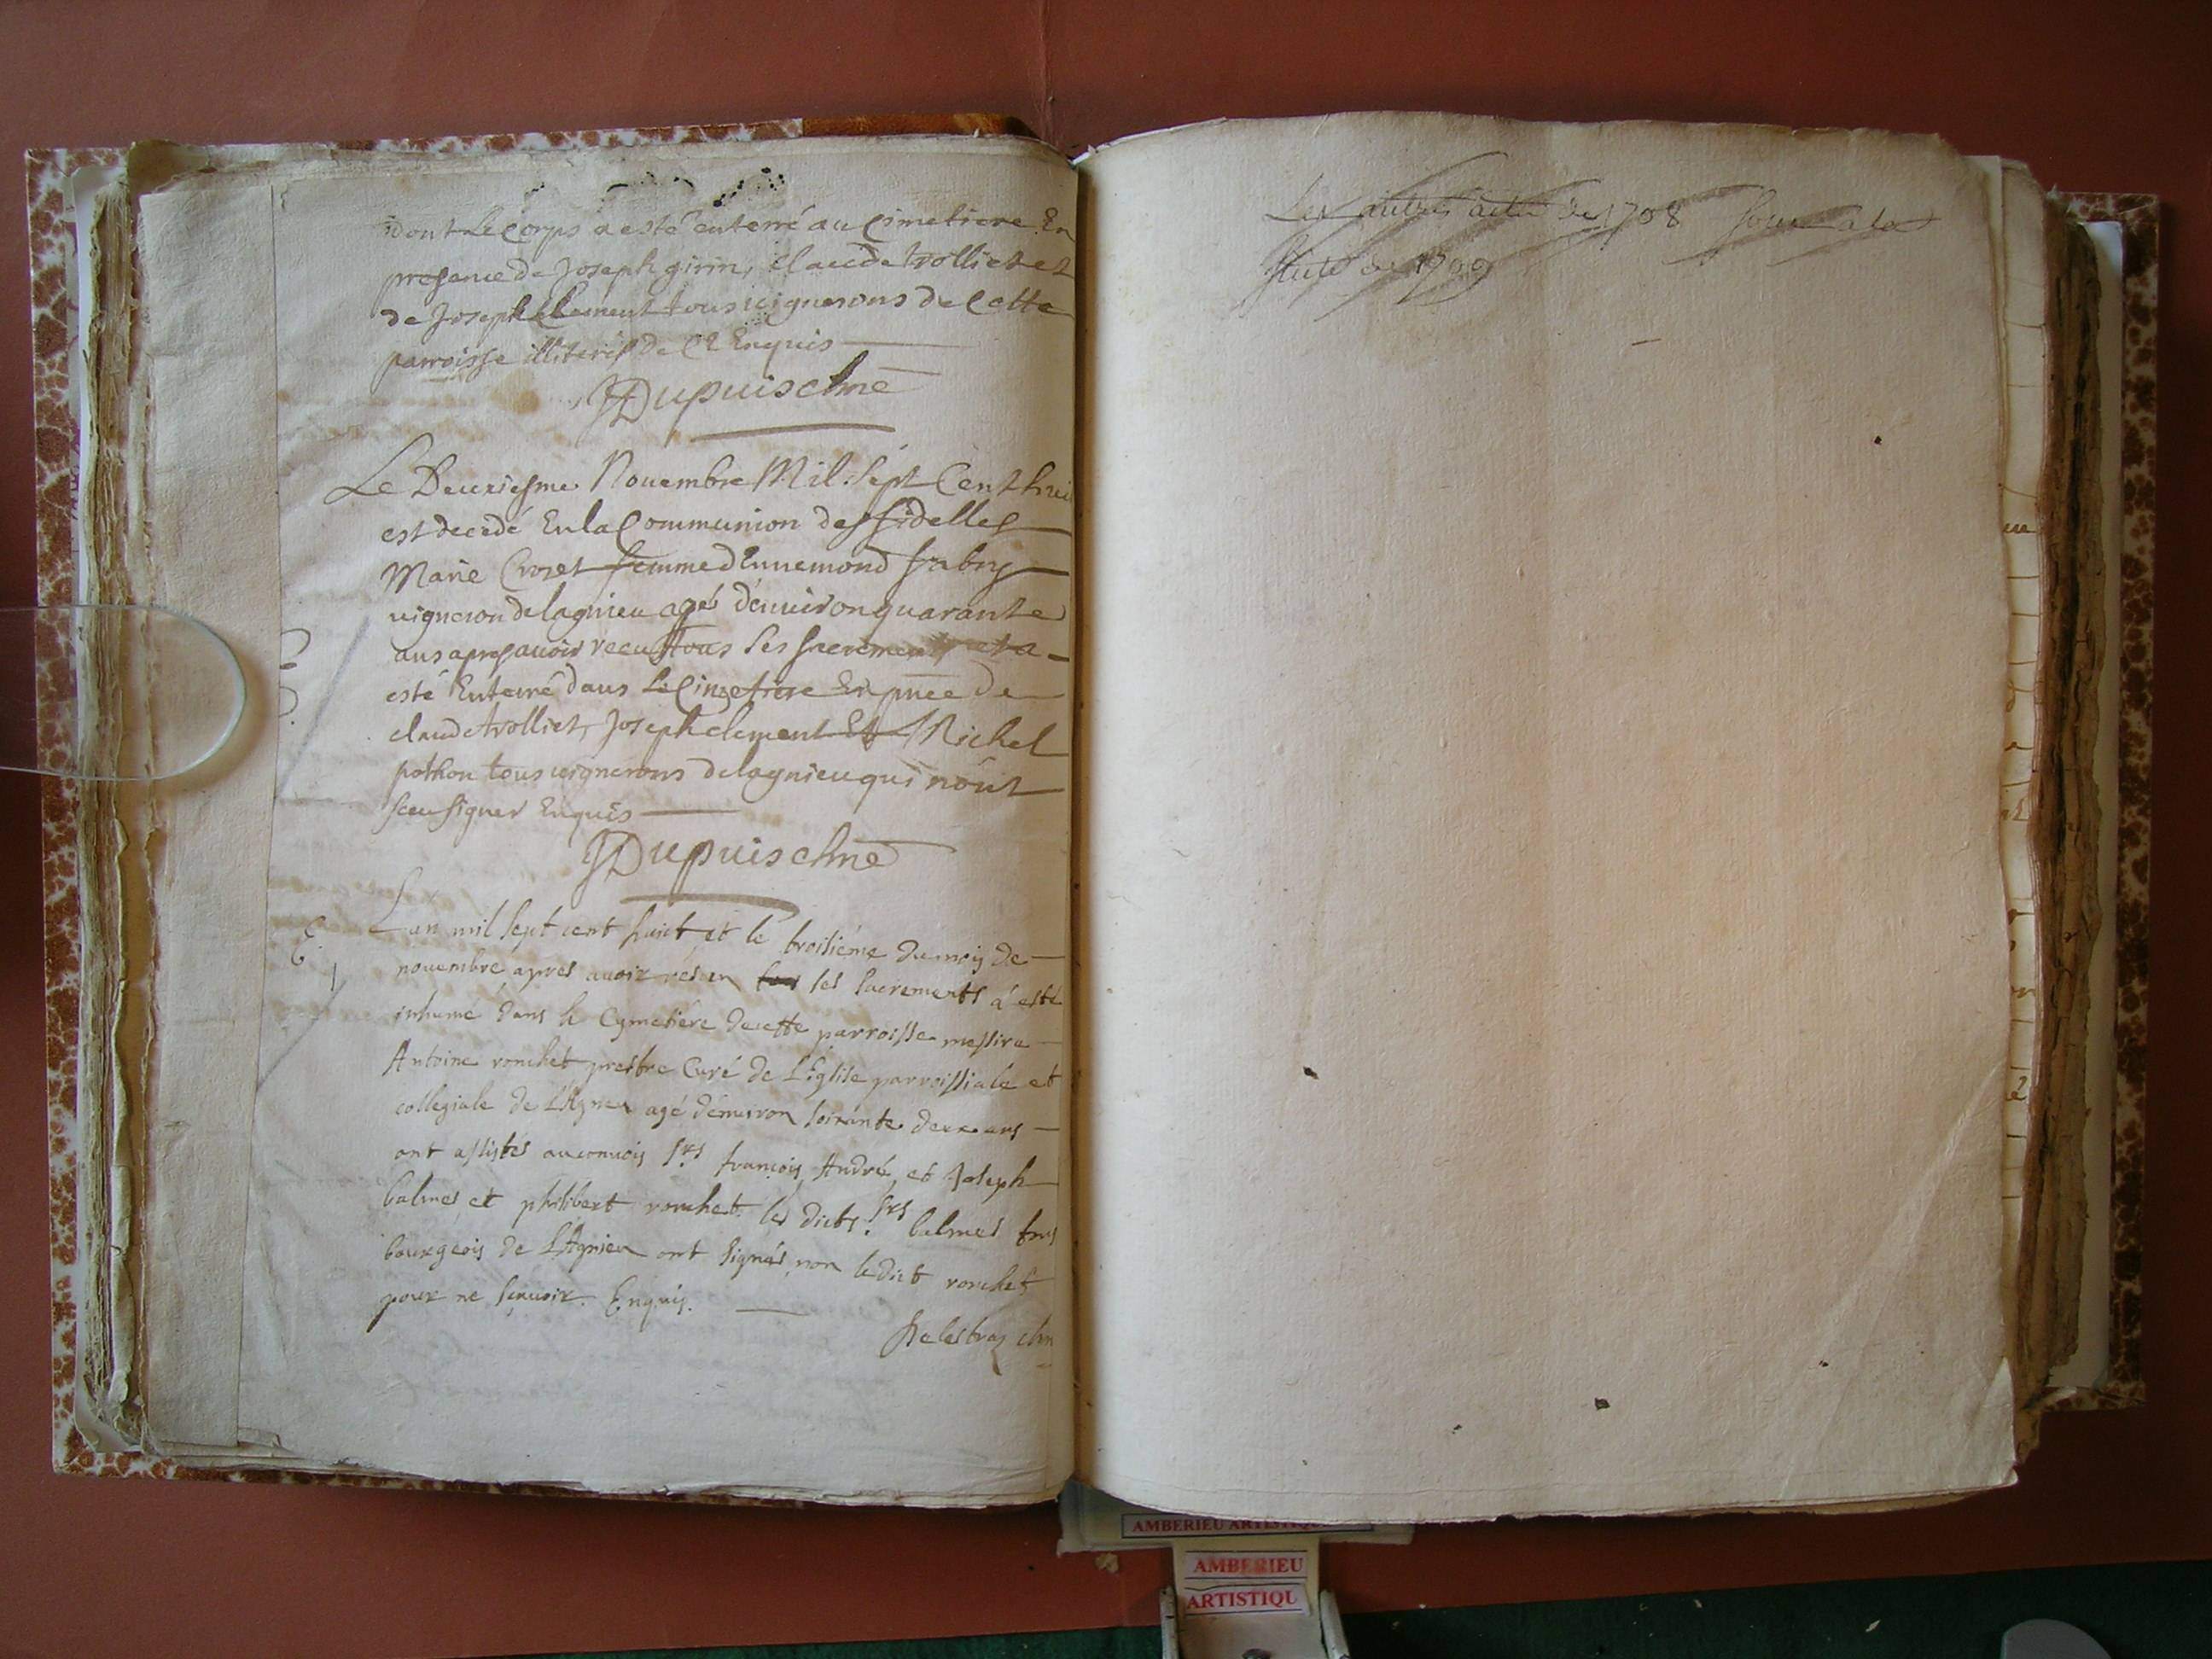 dont Le Corps a esté enterré au Cimetiere En
presance de Joseph girin, claude trolliet et
de Joseph Clement tous uignerons de Cette
parroisse illiterés de Ce Enquis
JDupuis chne
Le Deuxiesme Nouembre Mil Sept Cent hui
est decedé En la Communion des fidelles
Marie Crozet femme d'Ennemond fabry
uigneron de lagnieu agée d'enuiron quarante
ans apres auoir receu tous Ses Sacrements et a
esté Enterré dans Le Cimetiere En pnce de
claude trolliet, Joseph clement Et Michel
pothon tous uignerons de lagnieu qui n'ont
sceu signer Enquis
JDupuis chne
E.
L'an mil sept cent huict et le troisiéme du mois de
nouembre apres auoir reseu ses sacrements á esté
inhumé dans le Cymetiére de cette parroisse messire
Antoine ronchet prestre Curé de L'Eglise parroissiale et
collegiale de L'Agnieu agé d'enuiron soixante deux ans
ont assistés au conuois Srs françois, André, et Joseph
balmes et philibert ronchet les dicts Srs balmes tous
bourgeois de L'Agnieu ont signés, non le dict ronchet
pour ne sçauoir. Enquis.
Delestraz chn
Les autres actes de 1708 sont a la
suite de 1709
AMBERIEU
AMBERIEU
ARTISTIQU